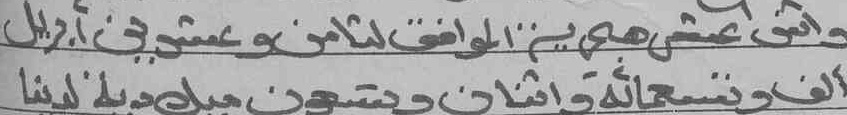 واثنى عشر هجرية الموافق لثامن وعشرين أبريل
ألف وتسعمائة واثنان وتسعون ميلادية لدينا